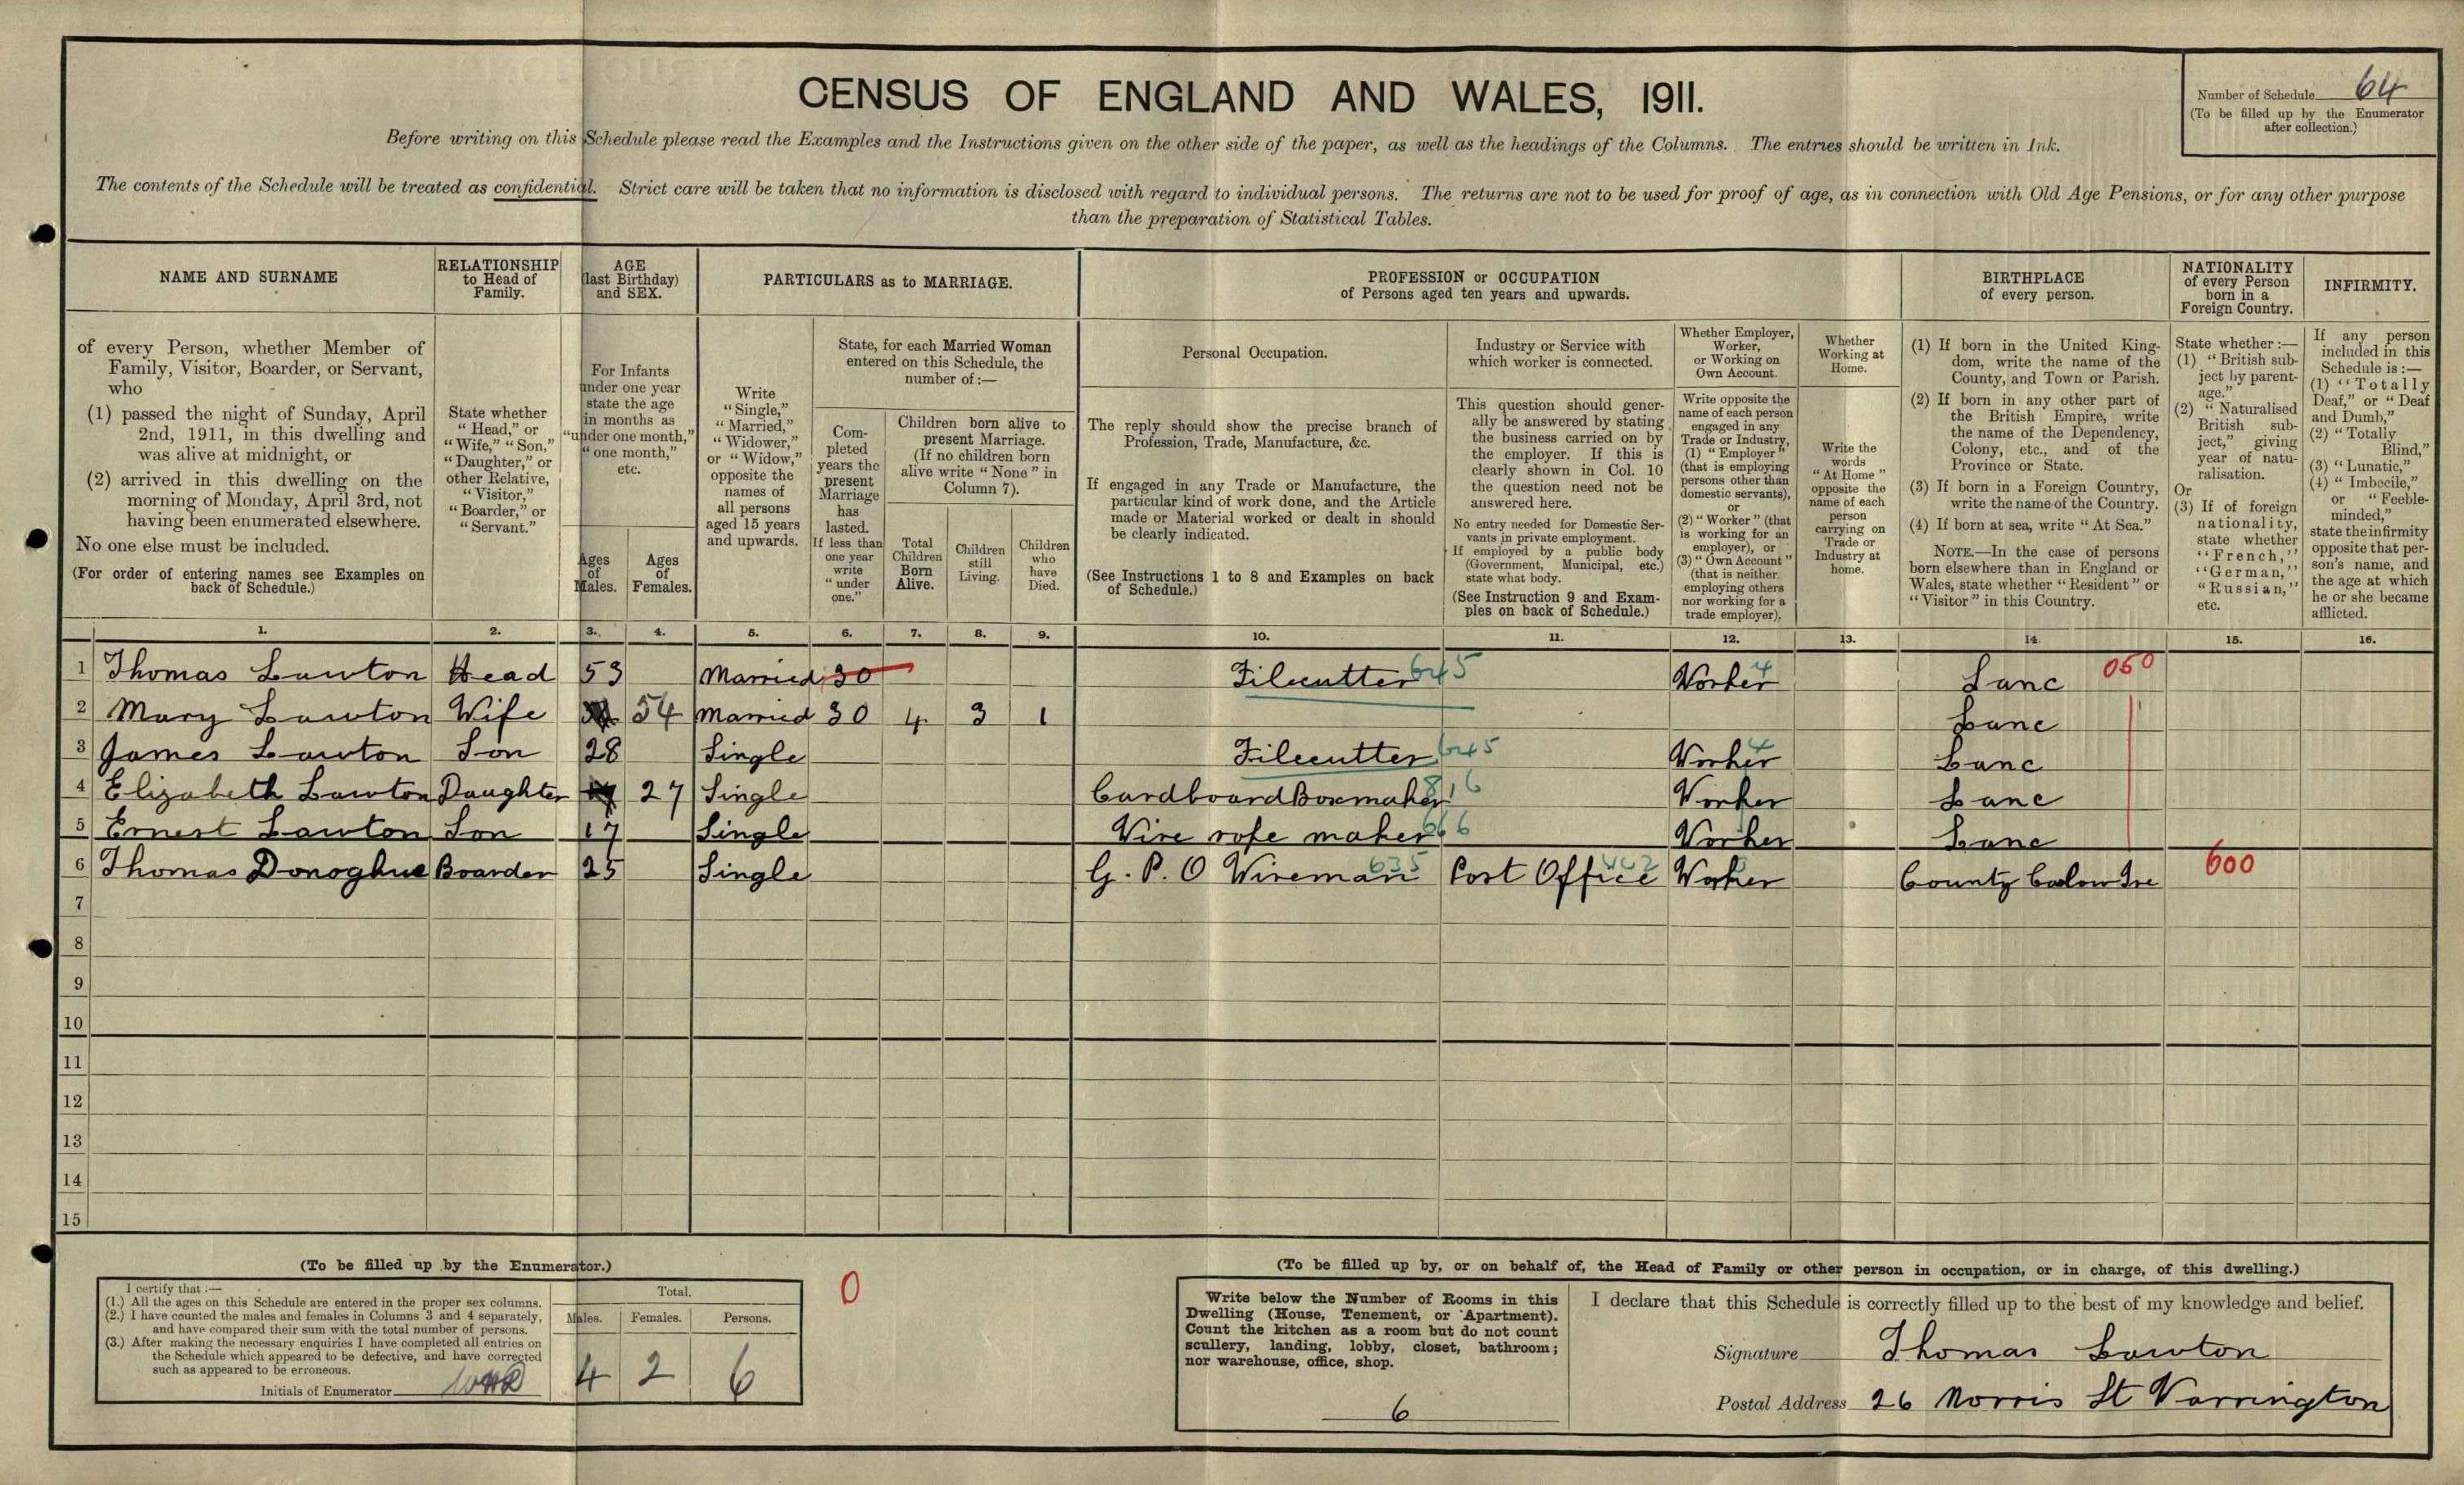 CENSUS OF ENGLAND AND WALES, 1911.
Number of Schedule 64
(To be filled up by the Enumerator
after collection.)
Before writing on this Schedule please read the Examples and the Instructions given on the other side of the paper, as well as the headings of the Columns. The entries should be written in Ink.
The contents of the Schedule will be treated as confidential. Strict care will be taken that no information is disclosed with regard to individual persons. The returns are not to be used for proof of age, as in connection with Old Age Pensions, or for any other purpose
than the preparation of Statistical Tables.
NAME AND SURNAME
of every Person, whether Member of
Family, Visitor, Boarder, or Servant,
who
(1) passed the night of Sunday, April
2nd, 1911, in this dwelling and
was alive at midnight, or
(2) arrived in this dwelling on the
morning of Monday, April 3rd, not
having been enumerated elsewhere.
No one else must be included.
(For order of entering names see Examples on
back of Schedule.)
RELATIONSHIP
to Head of
Family.
State whether
"Head," or
"Wife," "Son,"
"Daughter," or
other Relative,
"Visitor,"
"Boarder," or
"Servant."
AGE
(last Birthday)
and SEX.
For Infants
under one year
state the age
in months as
"under one month,"
"one month,"
etc.
Ages
of
Males.
Ages
of
Females.
PARTICULARS as to MARRIAGE.
Write
"Single,"
"Married,"
"Widower,"
or "Widow,"
opposite the
names of
all persons
aged 15 years
and upwards.
State, for each Married Woman
entered on this Schedule, the
number of:—
Com-
pleted
years the
present
Marriage
has
lasted.
If less than
one year
write
"under
one."
Children born alive to
present Marriage.
(If no children born
alive write "None" in
Column 7).
Total
Children
Born
Alive.
Children
still
Living.
Children
who
have
Died.
PROFESSION or OCCUPATION
of Persons aged ten years and upwards.
Personal Occupation.
The reply should show the precise branch of
Profession, Trade, Manufacture, &c.
If engaged in any Trade or Manufacture, the
particular kind of work done, and the Article
made or Material worked or dealt in should
be clearly indicated.
(See Instructions 1 to 8 and Examples on back
of Schedule.)
Industry or Service with
which worker is connected.
This question should gener-
ally be answered by stating
the business carried on by
the employer. If this is
clearly shown in Col. 10
the question need not be
answered here.
No entry needed for Domestic Ser-
vants in private employment.
If employed by a public body
(Government, Municipal, etc.)
state what body.
(See Instruction 9 and Exam-
ples on back of Schedule.)
Whether Employer,
Worker,
or Working on
Own Account.
Write opposite the
name of each person
engaged in any
Trade or Industry,
(1) "Employer"
(that is employing
persons other than
domestic servants),
or
(2) "Worker" (that
is working for an
employer), or
(3) "Own Account"
(that is neither
employing others
nor working for a
trade employer).
Whether
Working at
Home.
Write the
words
"At Home"
opposite the
name of each
person
carrying on
Trade or
Industry at
home.
BIRTHPLACE
of every person.
(1) If born in the United King-
dom, write the name of the
County, and Town or Parish.
(2) If born in any other part of
the British Empire, write
the name of the Dependency,
Colony, etc., and of the
Province or State.
(3) If born in a Foreign Country,
write the name of the Country.
(4) If born at sea, write "At Sea."
NOTE.—In the case of persons
born elsewhere than in England or
Wales, state whether "Resident" or
"Visitor" in this Country.
NATIONALITY
of every Person
born in a
Foreign Country.
State whether:—
(1) "British sub-
ject by parent-
age."
(2) "Naturalised
British sub-
ject," giving
year of natu-
ralisation.
Or
(3) If of foreign
nationality,
state whether
"French,"
"German,"
"Russian,"
etc.
INFIRMITY.
If any person
included in this
Schedule is:—
(1) "Totally
Deaf," or "Deaf
and Dumb,"
(2) "Totally
Blind,"
(3) "Lunatic,"
(4) "Imbecile,"
or "Feeble-
minded,"
state the infirmity
opposite that per-
son's name, and
the age at which
he or she became
afflicted.
1. 2. 3. 4. 5. 6. 7. 8. 9. 10. 11. 12. 13. 14. 15. 16.
1 Thomas Lawton Head 53 Married 30 Filecutter 645 Worker 4 Lanc 060
2 Mary Lawton Wife 54 Married 30 4 3 1 Lanc
3 James Lawton Son 28 Single Filecutter 645 Worker 4 Lanc
4 Elizabeth Lawton Daughter 27 Single Cardboard Boxmaker 816 Worker Lanc
5 Ernest Lawton Son 17 Single Wire rope maker 666 Worker Lanc
6 Thomas Donoghue Boarder 25 Single G. P. O Wireman 635 Post Office Worker County Carlow Ire 600
7
8
9
10
11
12
13
14
15
(To be filled up by the Enumerator.)
I certify that:—
(1.) All the ages on this Schedule are entered in the proper sex columns.
(2.) I have counted the males and females in Columns 3 and 4 separately,
and have compared their sum with the total number of persons.
(3.) After making the necessary enquiries I have completed all entries on
the Schedule which appeared to be defective, and have corrected
such as appeared to be erroneous.
Initials of Enumerator
Total.
Males. Females. Persons.
4 2 6
0
(To be filled up by, or on behalf of, the Head of Family or other person in occupation, or in charge, of this dwelling.)
Write below the Number of Rooms in this
Dwelling (House, Tenement, or Apartment).
Count the kitchen as a room but do not count
scullery, landing, lobby, closet, bathroom;
nor warehouse, office, shop.
6
I declare that this Schedule is correctly filled up to the best of my knowledge and belief.
Signature Thomas Lawton
Postal Address 26 Norris St Warrington